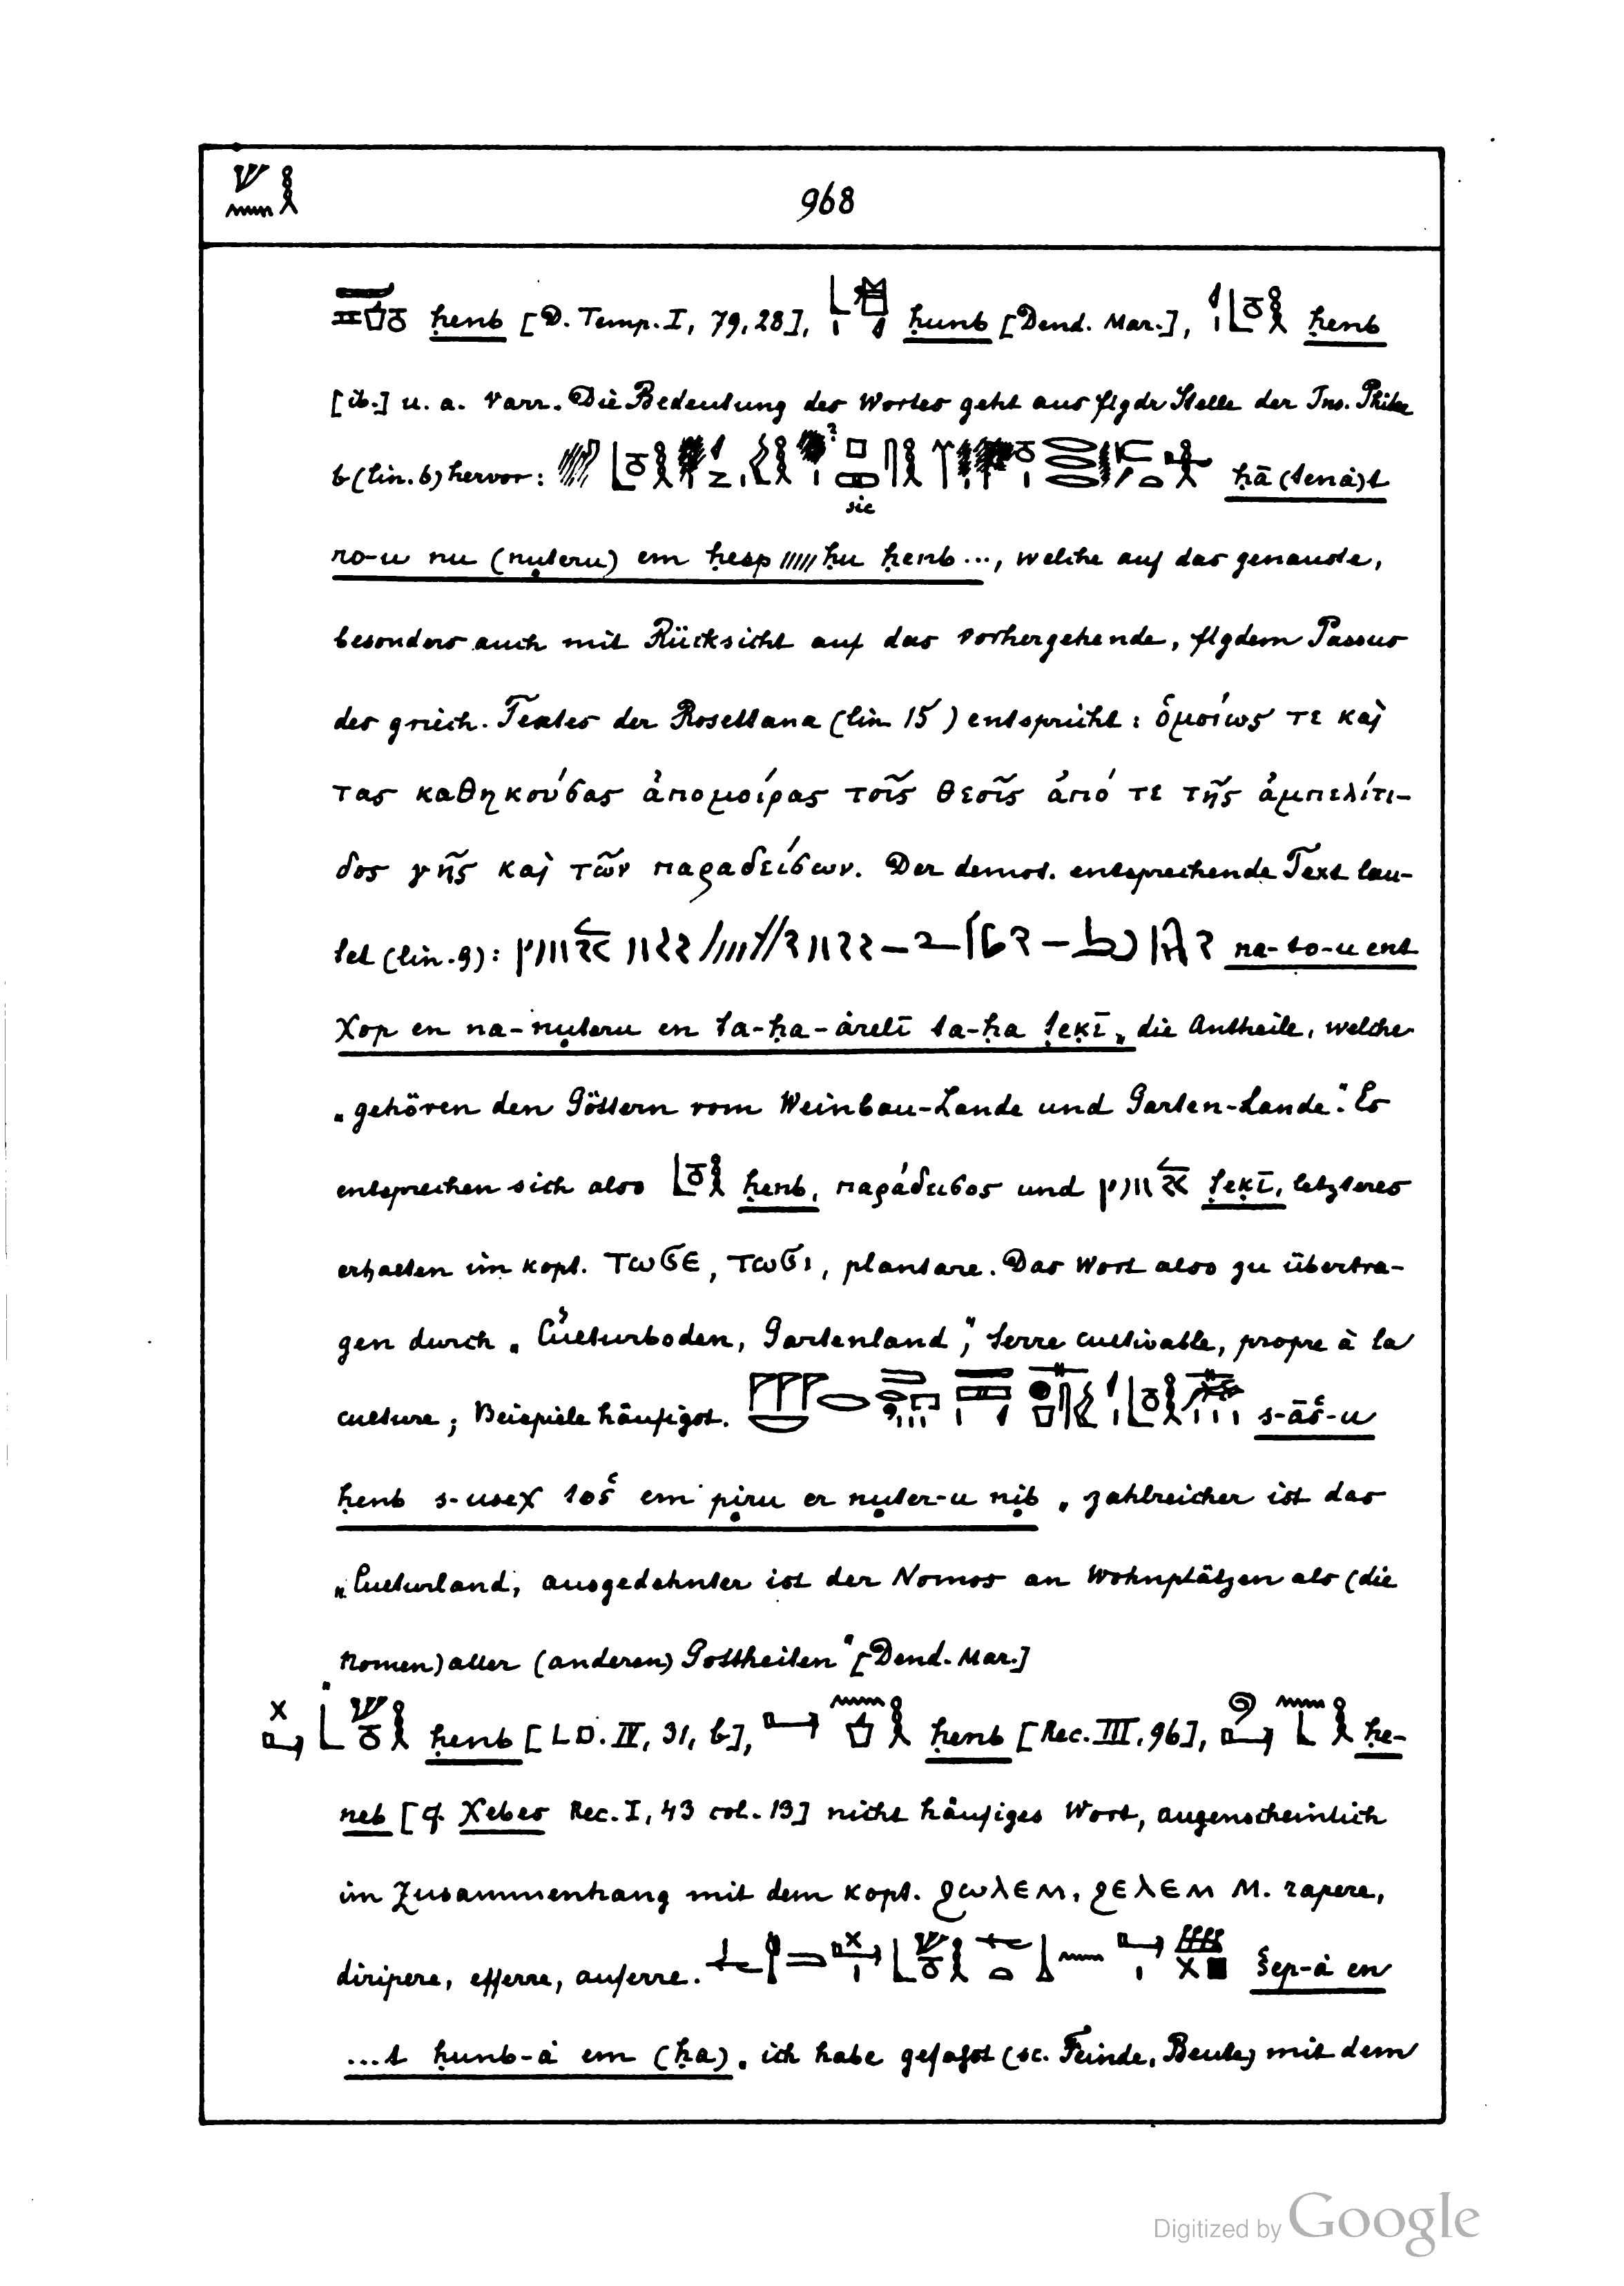 968
ḥenb [D. Temp. I, 79, 28], ḥunb [Dend. Mar.], ḥenb
[ib.] u. a. Varr. Die Bedeutung des Wortes geht aus flgdr Stelle der Ins. Philae
b (lin. b) hervor: ḥā (tenȧ)t
sic
ro-u nu (nuteru) em ḥesp ///// ḥu ḥenb ..., welche auf das genauste,
besonders auch mit Rücksicht auf das vorhergehende, flgdem Passus
des griech. Textes der Rosettana (lin. 15) entspricht: ὁμοίως τε καὶ
τας καθηκούσας ἀπομοίρας τοῖς θεοῖς ἀπό τε τῆς ἀμπελίτι-
δος γῆς καὶ τῶν παραδείσων. Der demot. entsprechende Text lau-
tet (lin. 9): na-to-u ent
χop en na-nuteru en ta-ḥa-ȧreli ta-ḥa ṭeḳī „die Antheile, welche
„gehören den Göttern vom Weinbau-Lande und Garten-Lande". Es
entsprechen sich also ḥenb, παράδεισος und ṭeḳī, letzteres
erhalten im kopt. ⲧⲱϭⲉ, ⲧⲱϭⲓ, plantare. Das Wort also zu übertra-
gen durch „Culturboden, Gartenland", terre cultivable, propre à la
culture; Beispiele häufigst. s-āš-u
ḥenb s-useχ toš em piru er nuter-u nib „zahlreicher ist das
„Culturland, ausgedehnter ist der Nomos an Wohnplätzen als (die
„Nomen) aller (anderen) Gottheiten" [Dend. Mar.]
ḥenb [LD. IV, 31, b], ḥenb [Rec. III, 96], ḥe-
neb [cf. χebes Rec. I, 43 col. 13] nicht häufiges Wort, augenscheinlich
im Zusammenhang mit dem kopt. ϩⲱⲗⲉⲙ, ϩⲉⲗⲉⲙ M. rapere,
diripere, efferre, auferre. šep-ȧ en
...t ḥunb-ȧ em (ḥa) „ich habe gefasst (sc. Feinde, Beute) mit dem
Digitized by Google